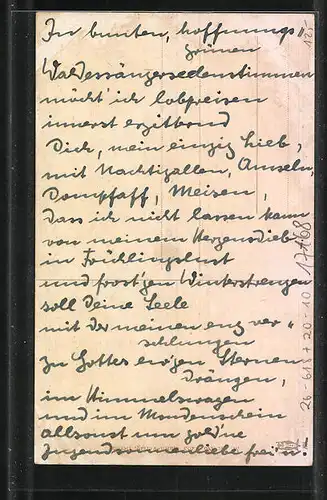 In bunten, hoffnungs"
grünen
Waldessängerseelenstimmen
möcht' ich lobpreisen
innerst erzitternd
Dich, mein einzig Lieb,
mit Nachtigallen, Amseln,
Dompfaff, Meisen,
dass ich nicht lassen kann
von meinem Herzensdieb
in Frühlingslust
und frost'gen Winterstrengen
soll Deine Seele
mit der meinen eng ver"
schlungen
zu Gottes ew'gen Sternen
drängen,
im Himmelswagen
und im Mondenschein
allsonst um gold'ne
Jugend